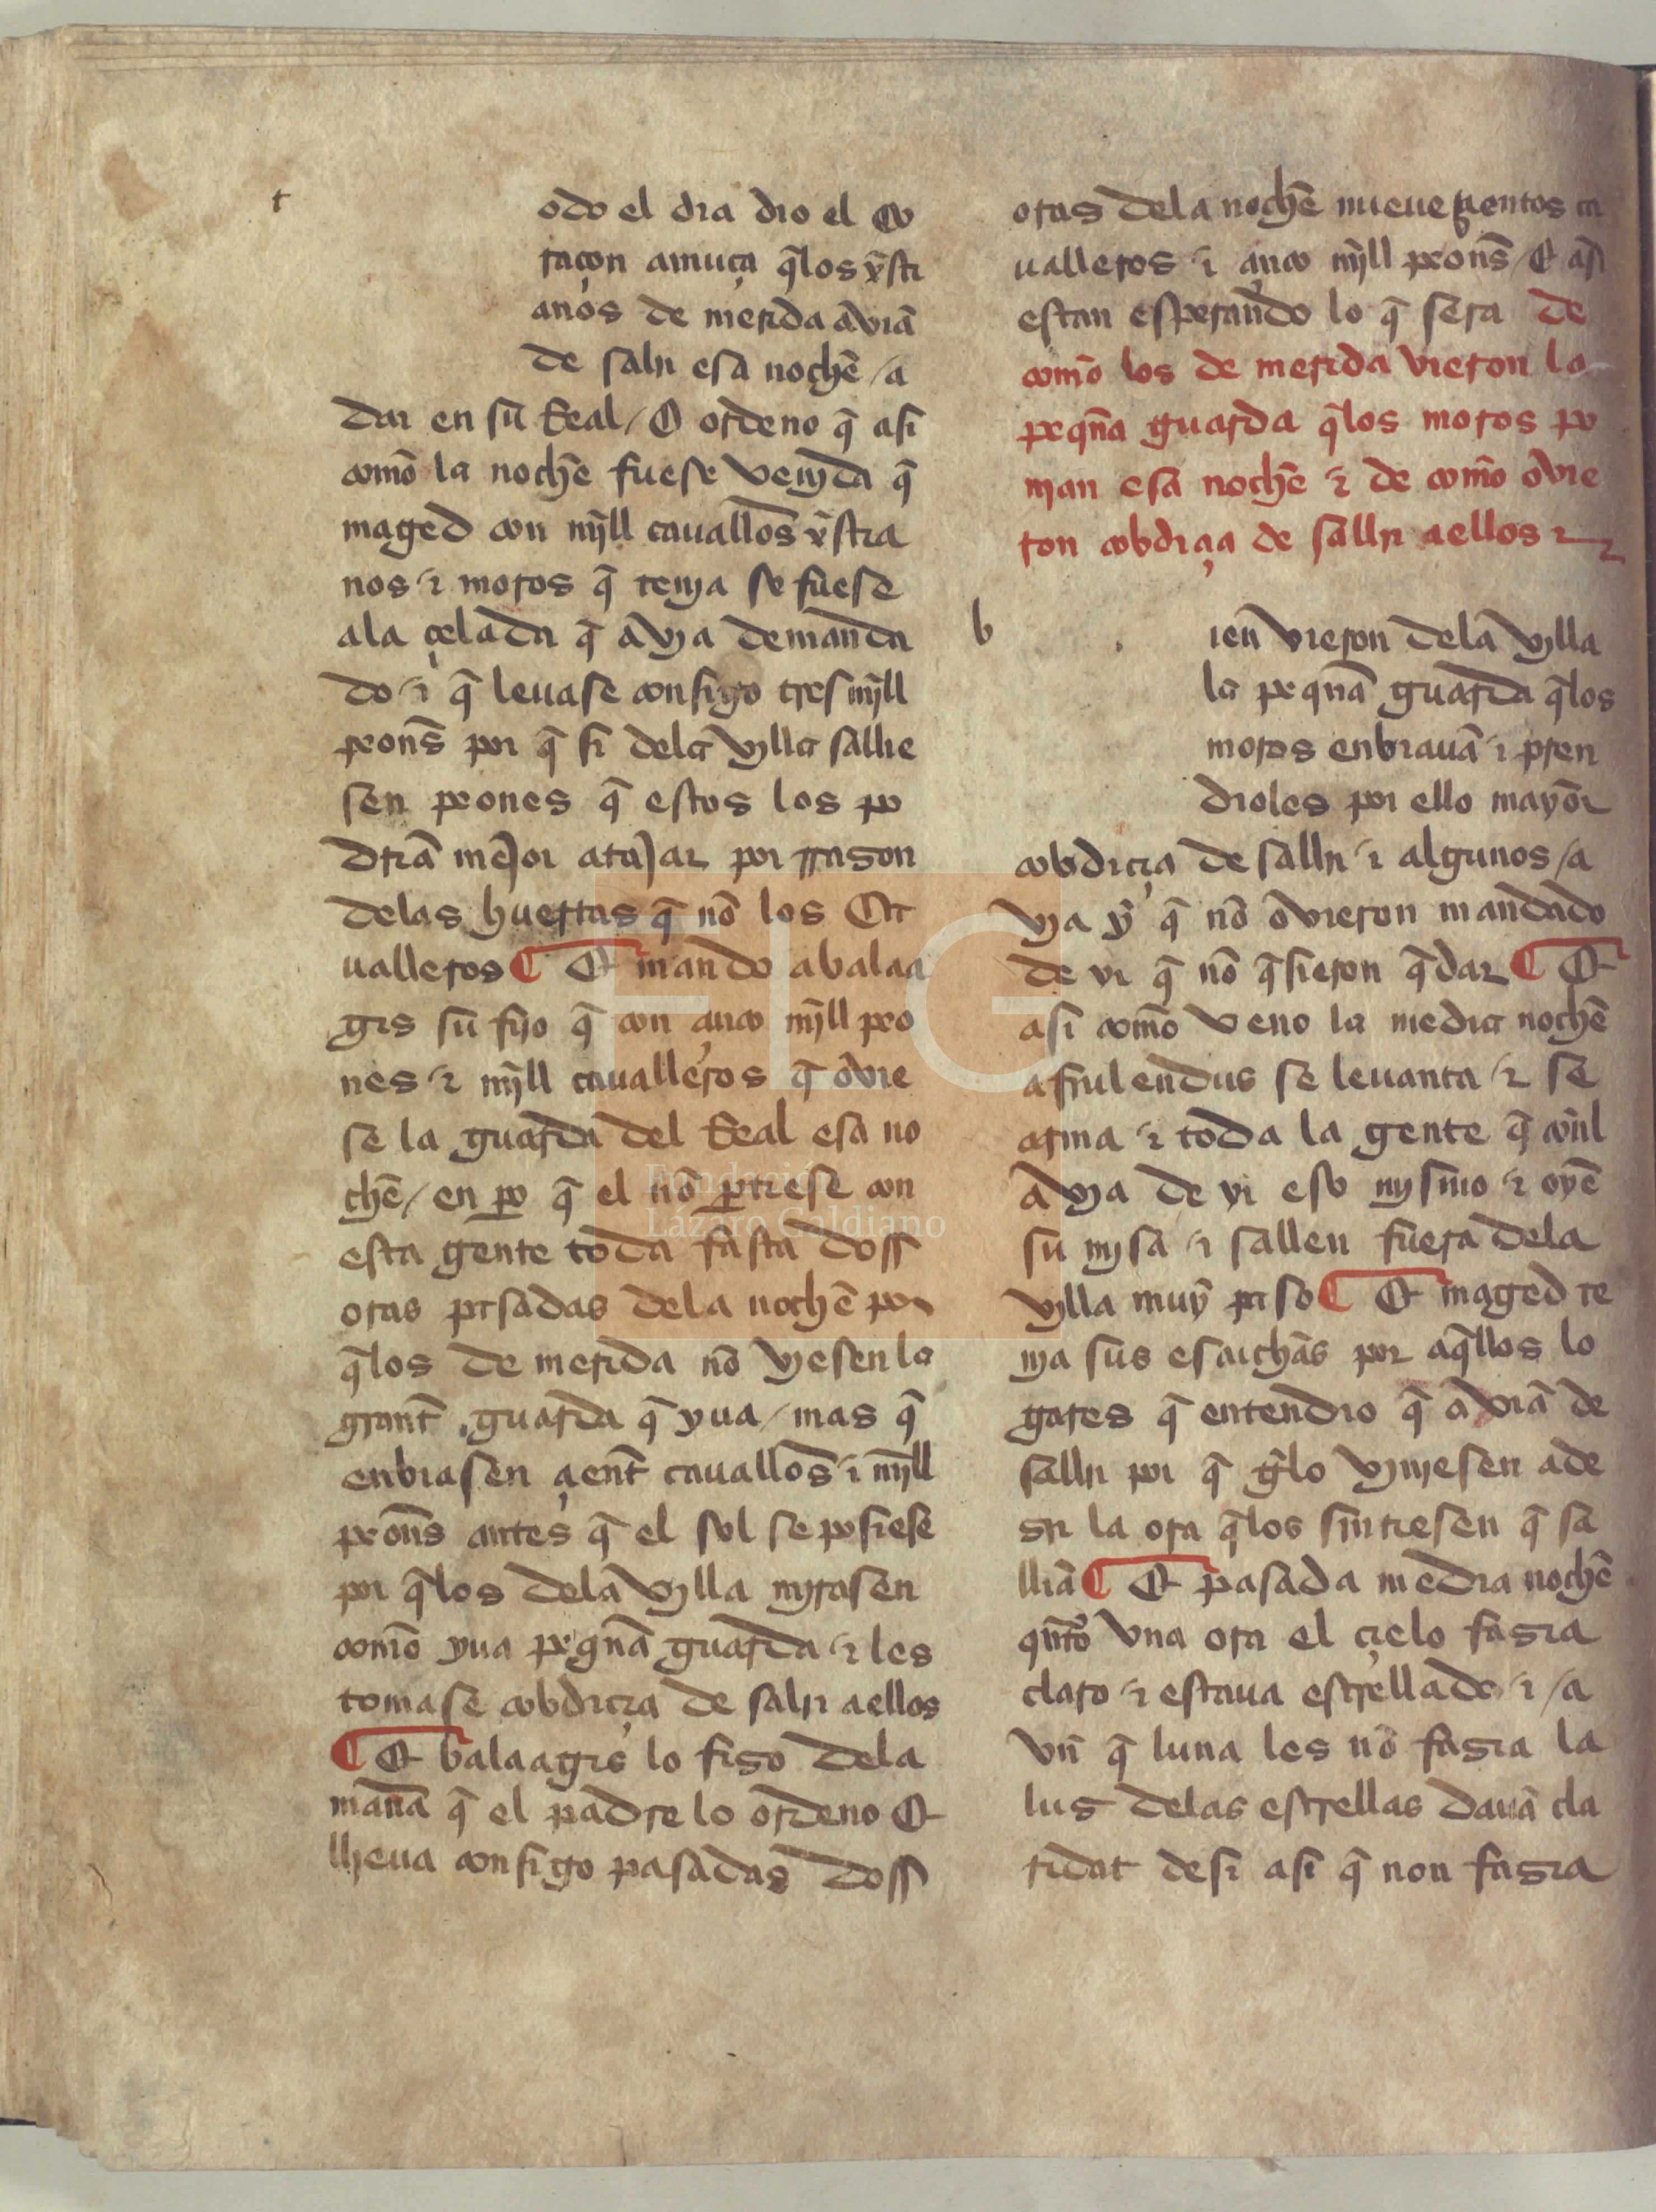 t
odo el dia dio el co
raçon amuça q̄los xp̄sti
anos de merida avia
de salir esa noche / a
dar en su Real / E ordeno q̄ asi
como la noche fuese venjda q̄
maged con mjll cauallos xp̄stia
nos τ moros q̄ tenja se fuese
ala çelada q̄ avya demanda
do τ q̄ leuase consigo tres mjll
peons̄ por q̄ si dela vylla sallie
sen peones q̄ estos los po
drīa mejor atajar por rrason
delas huertas q̄ nō los Ca
ualleros ¶ E mando abalaa
gis su fijo q̄ con çinco mjll peo
nes τ mjll caualleros q̄ ovie
se la guarda del Real esa no
chē / en po q̄ el nō partiese con
esta gente toda fasta doss
oras pasadas dela nochē por
q̄los de merida nō vyesen la
grant̄ guarda q̄ yua / mas q̄
enbiasen çient̄ cauallos̄ τ mjll
peons̄ antes q̄ el sol se posiese
por q̄los dela vylla mjrasen
comō yua peq̄nā guarda τ les
tomase cobdiçia de salir aellos
¶ E balaagis lo fiso dela
manā q̄ el padre lo ordeno E
lleua consigo pasadas doss
oras dela nochē nueueçientos ca
ualleros τ çinco mjll peons̄ / E asi
estan esperando lo q̄ sera de
comō los de merida vieron la
peq̄na guarda q̄los moros po
njan esa nochē τ de comō ovie
ron cobdiçia de sallir aellos τ
b
ien vieron dela vylla
la peq̄nā guarda q̄los
moros enbiauā τ pren
dioles por ello mayōr
cobdiçia de sallir τ algunos / a
vya ȳ q̄ nō ovieron mandado
de yr q̄ nō q̄sieron q̄dar ¶ E
asi comō veno la media nochē
afrulendus se leuanta τ se
arma τ toda la gente q̄ con̄l
avya de yr eso mjsmo τ oyē
su mjsa τ sallen fuera dela
vylla muȳ paso ¶ E maged te
nja sus escuchas por aq̄llos lo
gares q̄ entendio q̄ aviā de
sallir por q̄ gelo vynjesen a de
sir la ora q̄los sintiesen q̄ sa
lliā ¶ E pasada media nochē
qnto vna ora el çielo fasia
claro τ estaua estrellado τ / a
vn̄ q̄ luna les nō fasia la
lus delas estrellas dauā cla
ridat desi asi q̄ non fasia
Fundación
Lázaro Galdiano